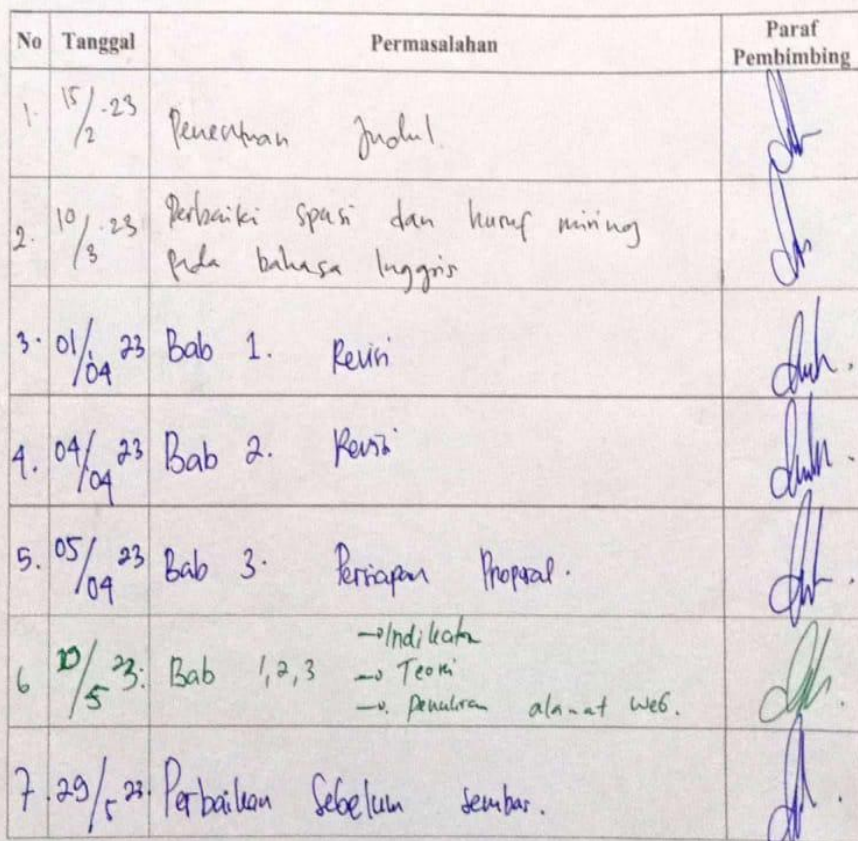 No Tanggal Permasalahan Paraf Pembimbing
1. 15/2-23 Penentuan Judul.
2. 10/3-23 Perbaiki spasi dan huruf miring
pada bahasa Inggris
3. 01/04 23 Bab 1. Revisi
4. 04/04 23 Bab 2. Revisi
5. 05/04 23 Bab 3. Persiapan Proposal.
→ Indikator
6 /5 23: Bab 1,2,3 → Teori
→ Penulisan alamat web.
7. 29/5 23. Perbaikan Sebelum